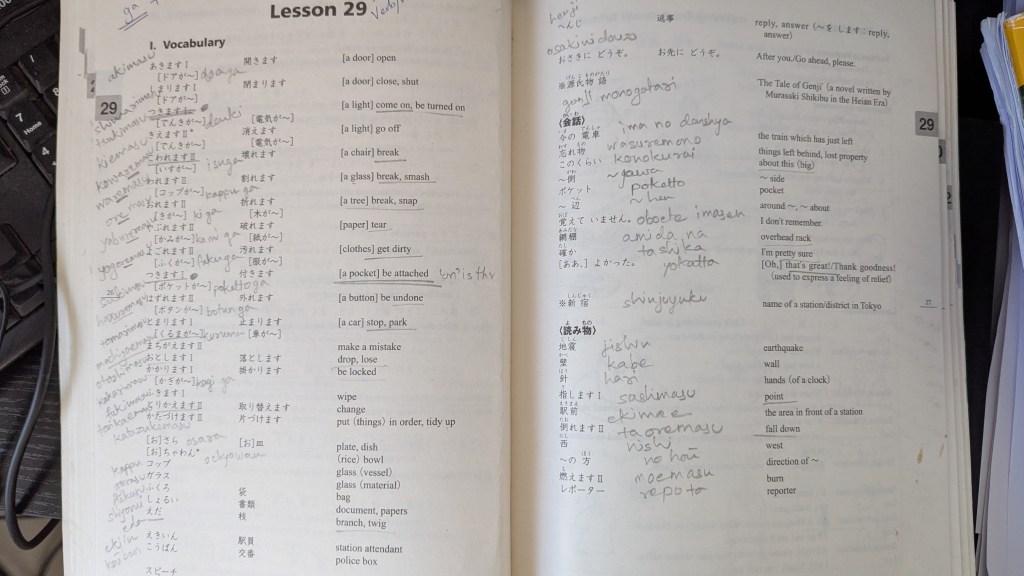 ga
Lesson 29
I. Vocabulary
akimasu
あきます I 開きます [a door] open
[ドアが〜] doaga
まります I 閉まります [a door] close, shut
[ドアが〜]
つきます I [a light] come on, be turned on
tsukimasu [でんきが〜] denki [電気が〜]
きえます II* 消えます [a light] go off
kiemasu [でんきが〜] [電気が〜]
こわれます II 壊れます [a chair] break
[いすが〜] isuga
われます II 割れます [a glass] break, smash
[コップが〜] kappu ga
おれます II 折れます [a tree] break, snap
[きが〜] ki ga [木が〜]
ぶれます II 破れます [paper] tear
[かみが〜] kami ga [紙が〜]
よごれます II 汚れます [clothes] get dirty
yogoremasu [ふくが〜] fukuga [服が〜]
つきます I 付きます [a pocket] be attached
[ポケットが〜] poketto ga
はずれます II 外れます [a button] be undone
[ボタンが〜] botan ga
とまります I 止まります [a car] stop, park
[くるまが〜] kuruma [車が〜]
まちがえます II make a mistake
おとします I 落とします drop, lose
かかります I 掛かります be locked
[かぎが〜] kagi ga
きます I wipe
りかえます II 取り替えます change
かたづけます II 片づけます put (things) in order, tidy up
katazukemasu
[お]さら osara [お]皿 plate, dish
[お]ちゃわん* ochawan (rice) bowl
kappu コップ glass (vessel)
ガラス glass (material)
ふくろ 袋 bag
しょるい 書類 document, papers
えだ 枝 branch, twig
eda
えきいん 駅員 station attendant
こうばん 交番 police box
スピーチ
29
henji
へんじ 返事 reply, answer (〜を します : reply, answer)
osakini douzo
おさきに どうぞ。 お先に どうぞ。 After you./Go ahead, please.
※源氏物語 げんじものがたり The Tale of Genji (a novel written by Murasaki Shikibu in the Heian Era)
genji monogatari
〈会話〉 かいわ
今の 電車 いま でんしゃ ima no denshya the train which has just left
忘れ物 わす もの wasuremono things left behind, lost property
このくらい konokurai about this (big)
〜側 がわ ~gawa ~ side
ポケット poketto pocket
〜辺 へん ~hen around ~, ~ about
覚えて いません。 おぼ oboete imasen I don't remember.
網棚 あみだな amida na overhead rack
確か たし tashika I'm pretty sure
[ああ、] よかった。 yokatta [Oh,] that's great!/Thank goodness! (used to express a feeling of relief)
※新宿 しんじゅく shinjuyuku name of a station/district in Tokyo
27
〈読み物〉 よ もの
地震 じしん jishin earthquake
壁 かべ kabe wall
針 はり hari hands (of a clock)
指します I さ sashimasu point
駅前 えきまえ ekimae the area in front of a station
倒れます II たお taoremasu fall down
西 にし nishi west
〜の 方 ほう no hou direction of ~
燃えます II も moemasu burn
レポーター repota reporter
29